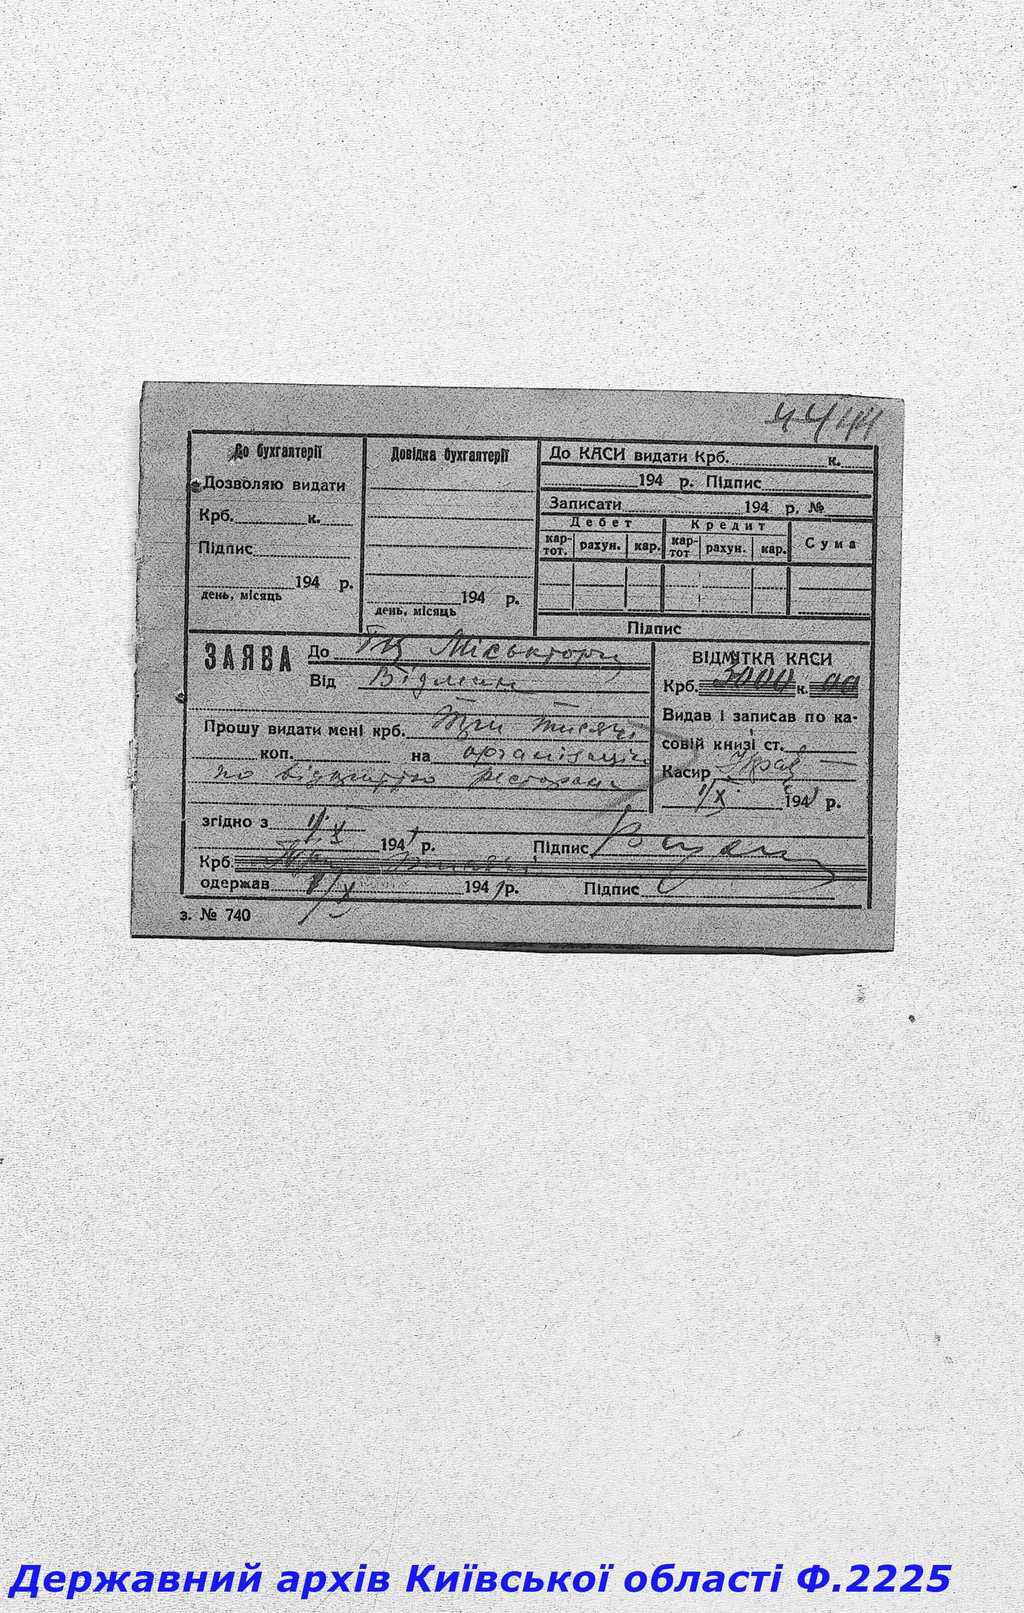 4444
До бухгалтерії
Дозволяю видати
Крб. к.
Підпис
194 р.
день, місяць
Довідка бухгалтерії
194 р.
день, місяць
До КАСИ видати Крб. к.
194 р. Підпис
Записати 194 р. №
Дебет Кредит Сума
кар-тот. рахун. кар. кар-тот рахун. кар.
Підпис
ЗАЯВА До Міськторгу
Від
Прошу видати мені крб. Три тисячі
коп. на організацію
по відкриттю ресторану
ВІДМІТКА КАСИ
Крб. 3000 к. 00
Видав і записав по ка-
совій книзі ст.
Касир
1/X 1941 р.
згідно з 1/X
1941 р. Підпис
Крб. Три тисячі
одержав 1/X 1941 р. Підпис
з. № 740
Державний архів Київської області Ф.2225